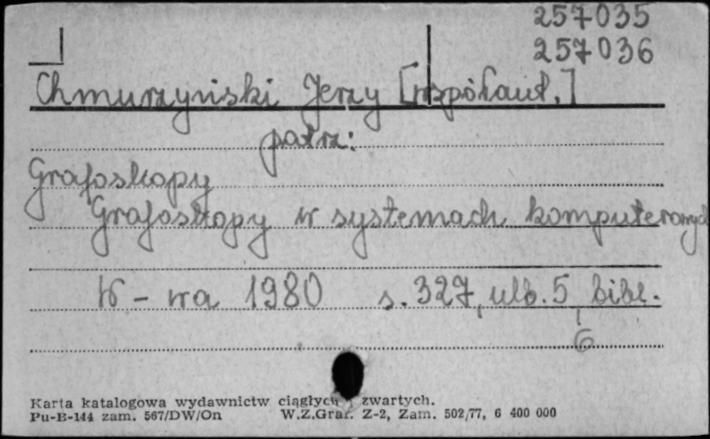 257035
257036
Chmurzyński Jerzy [współaut.]
patrz:
Grafoskopy
Grafoskopy w systemach komputerowych
W-wa 1980 s. 327, ulb. 5 bibl.
6
Karta katalogowa wydawnictw ciągłych i zwartych.
Pu-B-144 zam. 567/DW/On W.Z.Graf. Z-2, Zam. 502/77, 6 400 000